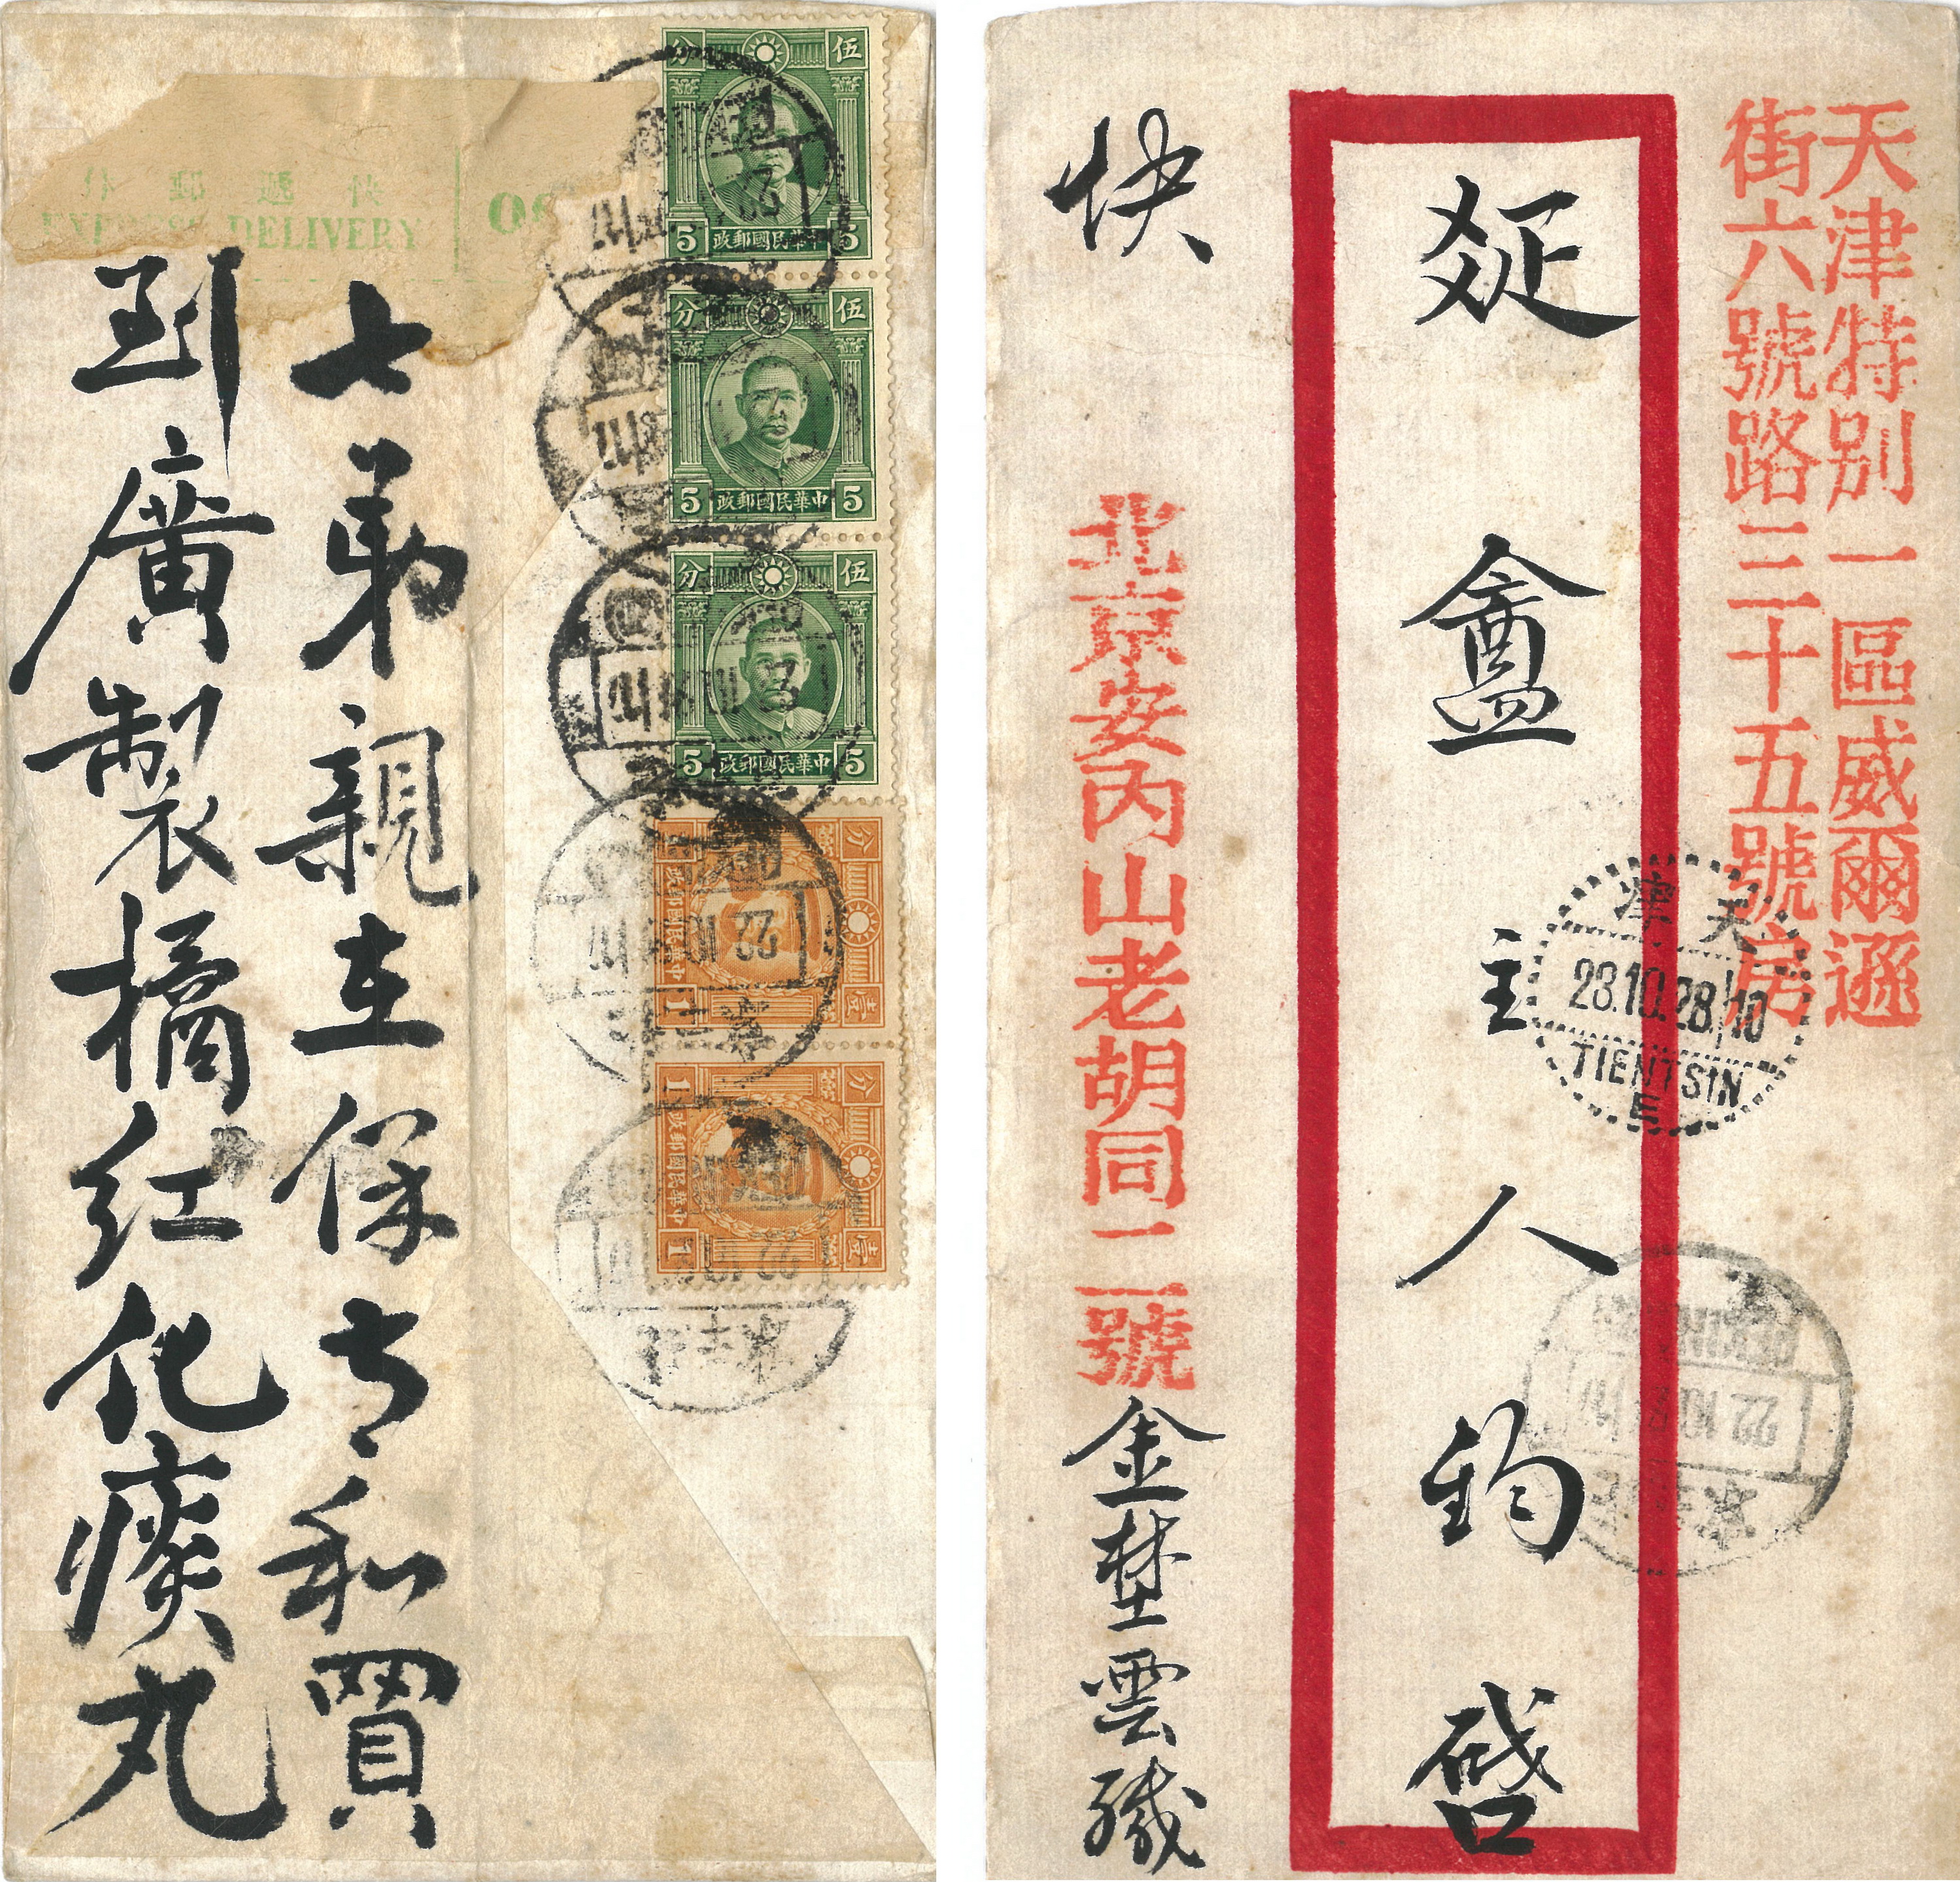 快遞郵件
EXPRESS DELIVERY
七弟親在保大和買
到廣製橘红化痰丸
伍分
中華民國郵政
5 5
伍分
中華民國郵政
5 5
伍分
中華民國郵政
5 5
壹分
中華民國郵政
1
壹分
中華民國郵政
1
22 10
天津特别一區威爾遜
街六號路三十五號房
主人鈞啓
快
北京安内山老胡同二號
金 雲緘
天津
28.10.28.10
TIENTSIN
E